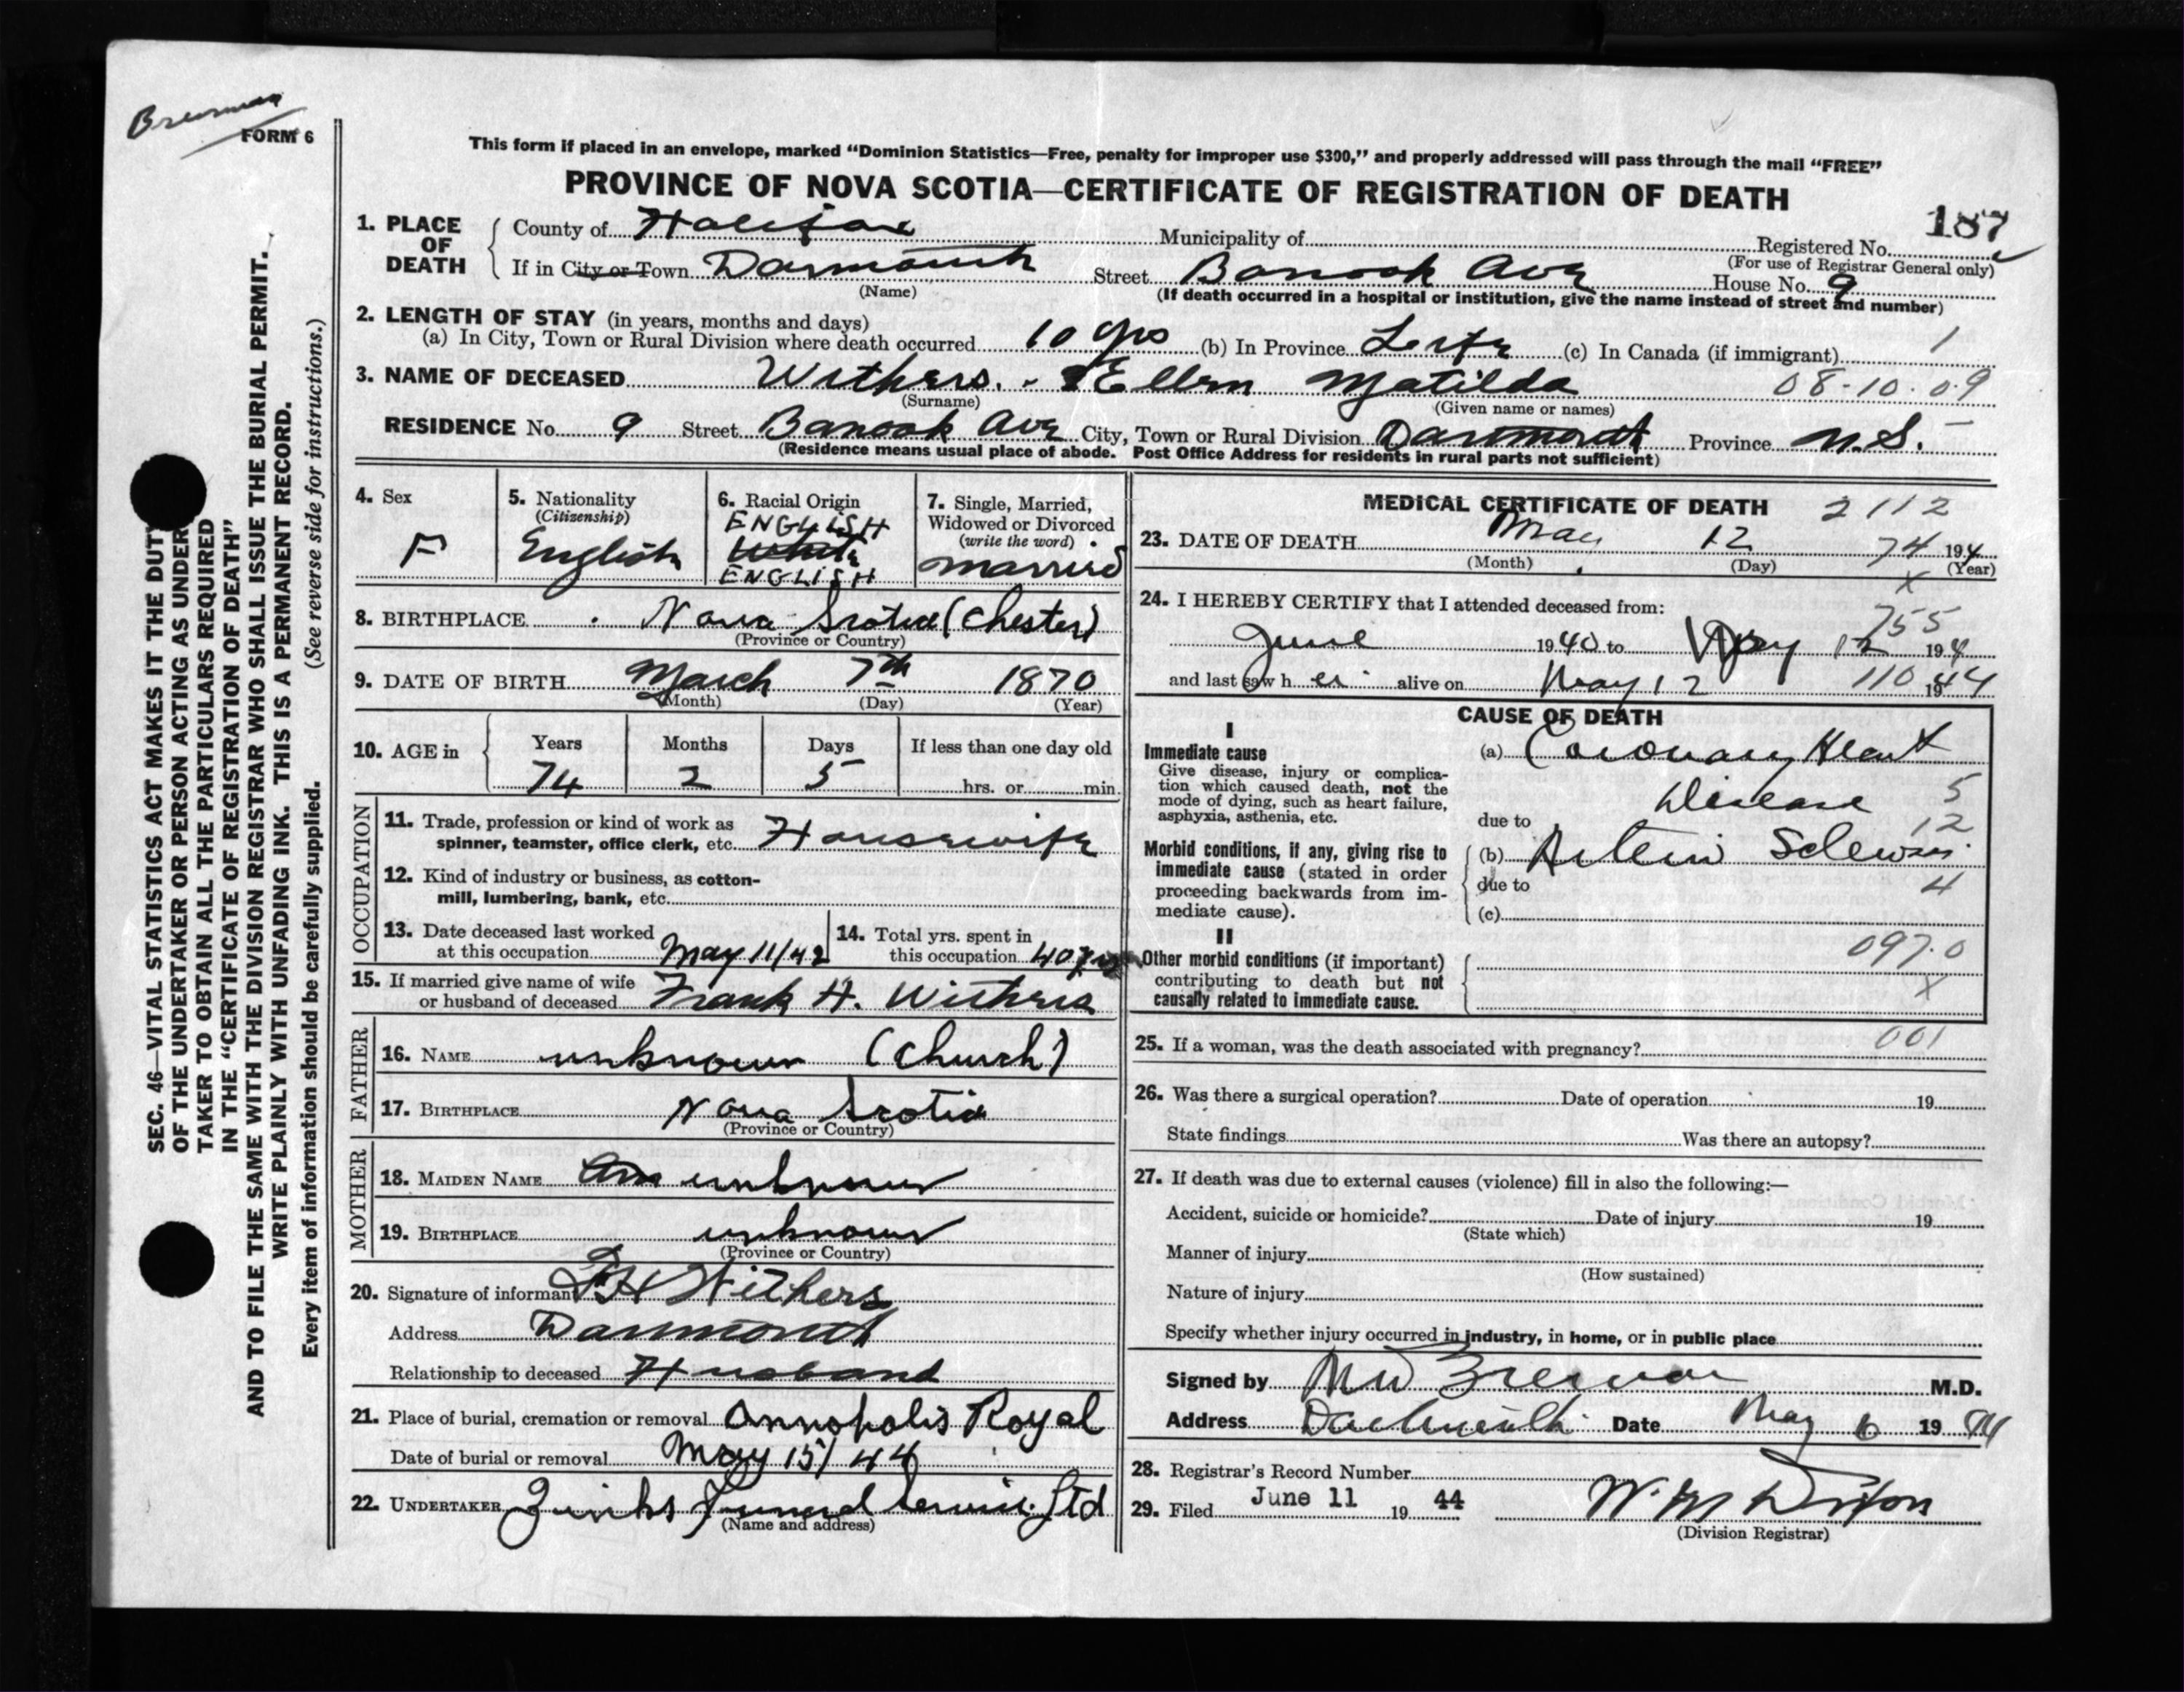 FORM 6
This form if placed in an envelope, marked "Dominion Statistics—Free, penalty for improper use $300," and properly addressed will pass through the mail "FREE"
PROVINCE OF NOVA SCOTIA—CERTIFICATE OF REGISTRATION OF DEATH
187
1. PLACE OF DEATH
County of Halifax Municipality of Registered No.
(For use of Registrar General only)
If in City or Town Darmouth Street Banook Ave House No. 9
(Name) (If death occurred in a hospital or institution, give the name instead of street and number)
2. LENGTH OF STAY (in years, months and days)
(a) In City, Town or Rural Division where death occurred 10 yrs (b) In Province Life (c) In Canada (if immigrant) 1
3. NAME OF DECEASED Withers. Ellen Matilda 08-10-09
(Surname) (Given name or names)
RESIDENCE No. 9 Street Banook Ave City, Town or Rural Division Dartmouth Province N.S.
(Residence means usual place of abode. Post Office Address for residents in rural parts not sufficient)
4. Sex
F
5. Nationality
(Citizenship)
English
6. Racial Origin
ENGLISH
White
ENGLISH
7. Single, Married,
Widowed or Divorced
(write the word)
Married
8. BIRTHPLACE Nova Scotia (Chester)
(Province or Country)
9. DATE OF BIRTH March 7th 1870
(Month) (Day) (Year)
10. AGE in Years Months Days If less than one day old
74 2 5 hrs. or min.
OCCUPATION
11. Trade, profession or kind of work as
spinner, teamster, office clerk, etc. Housewife
12. Kind of industry or business, as cotton-
mill, lumbering, bank, etc.
13. Date deceased last worked
at this occupation May 11/42
14. Total yrs. spent in
this occupation 40
15. If married give name of wife
or husband of deceased Frank H. Withers
FATHER
16. NAME unknown (Church)
17. BIRTHPLACE Nova Scotia
(Province or Country)
MOTHER
18. MAIDEN NAME unknown
19. BIRTHPLACE unknown
(Province or Country)
20. Signature of informant FH Withers
Address Darmouth
Relationship to deceased Husband
21. Place of burial, cremation or removal Annopolis Royal
Date of burial or removal May 15/44
22. UNDERTAKER Zinks Funeral Service Ltd
(Name and address)
MEDICAL CERTIFICATE OF DEATH 2112
23. DATE OF DEATH May 12 74 194
(Month) (Day) (Year)
X
24. I HEREBY CERTIFY that I attended deceased from:
755
June 1940 to May 12 194
and last saw her alive on May 12 110 1944
CAUSE OF DEATH
I
Immediate cause
Give disease, injury or complica-
tion which caused death, not the
mode of dying, such as heart failure,
asphyxia, asthenia, etc.
(a) Coronary Heart
Disease 5
due to 12
Morbid conditions, if any, giving rise to
immediate cause (stated in order
proceeding backwards from im-
mediate cause).
(b) Arterio Sclerosis
due to 4
(c)
II
Other morbid conditions (if important)
contributing to death but not
causally related to immediate cause.
097.0
X
001
25. If a woman, was the death associated with pregnancy?
26. Was there a surgical operation? Date of operation 19
State findings Was there an autopsy?
27. If death was due to external causes (violence) fill in also the following:—
Accident, suicide or homicide? Date of injury 19
(State which)
Manner of injury
(How sustained)
Nature of injury
Specify whether injury occurred in industry, in home, or in public place
Signed by M.D.
Address Dartmouth Date May 1944
28. Registrar's Record Number
29. Filed June 11 19 44 W. M Dixon
(Division Registrar)
SEC. 46—VITAL STATISTICS ACT MAKES IT THE DUTY
OF THE UNDERTAKER OR PERSON ACTING AS UNDER
TAKER TO OBTAIN ALL THE PARTICULARS REQUIRED
IN THE "CERTIFICATE OF REGISTRATION OF DEATH"
AND TO FILE THE SAME WITH THE DIVISION REGISTRAR WHO SHALL ISSUE THE BURIAL PERMIT.
WRITE PLAINLY WITH UNFADING INK. THIS IS A PERMANENT RECORD.
Every item of information should be carefully supplied. (See reverse side for instructions.)